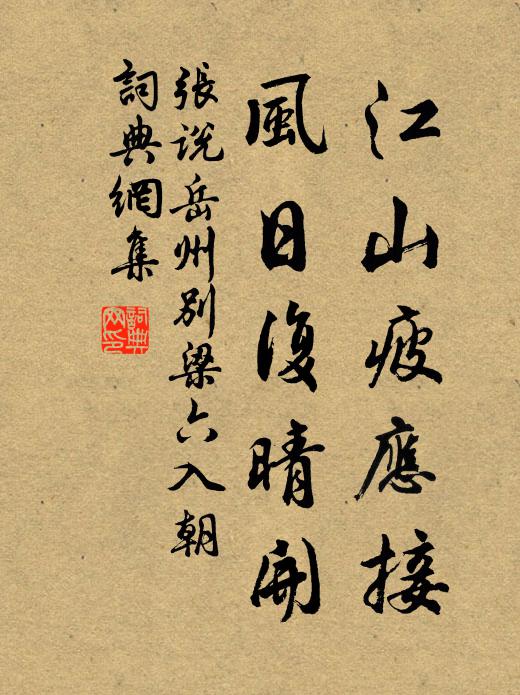 江山疲應接
風日復晴開
張説岳州別梁六入朝
詞典網集
詞典网印